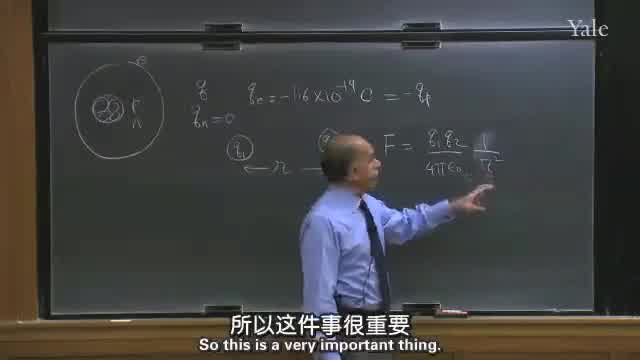 Yale
e
P
n
q
q_e = -1.6 × 10^-19 C = -q_p
q_n = 0
q_1 ← r — q
F = q_1 q_2 / 4πε_0 1 / r^2
所以这件事很重要
So this is a very important thing.